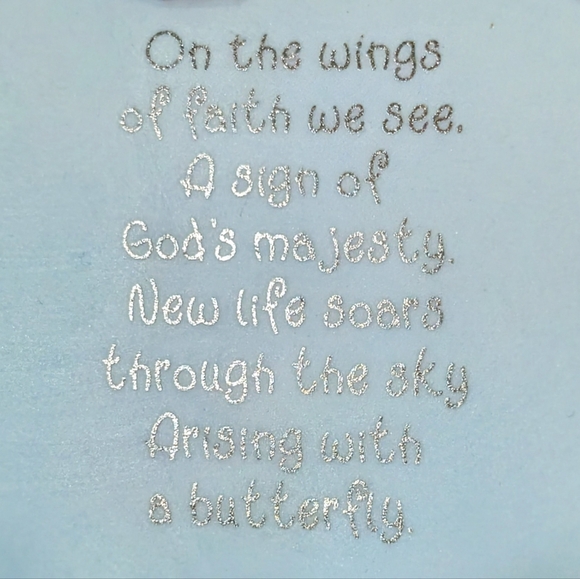 On the wings
of faith we see.
A sign of
God's majesty.
New life soars
through the sky
Arising with
a butterfly.